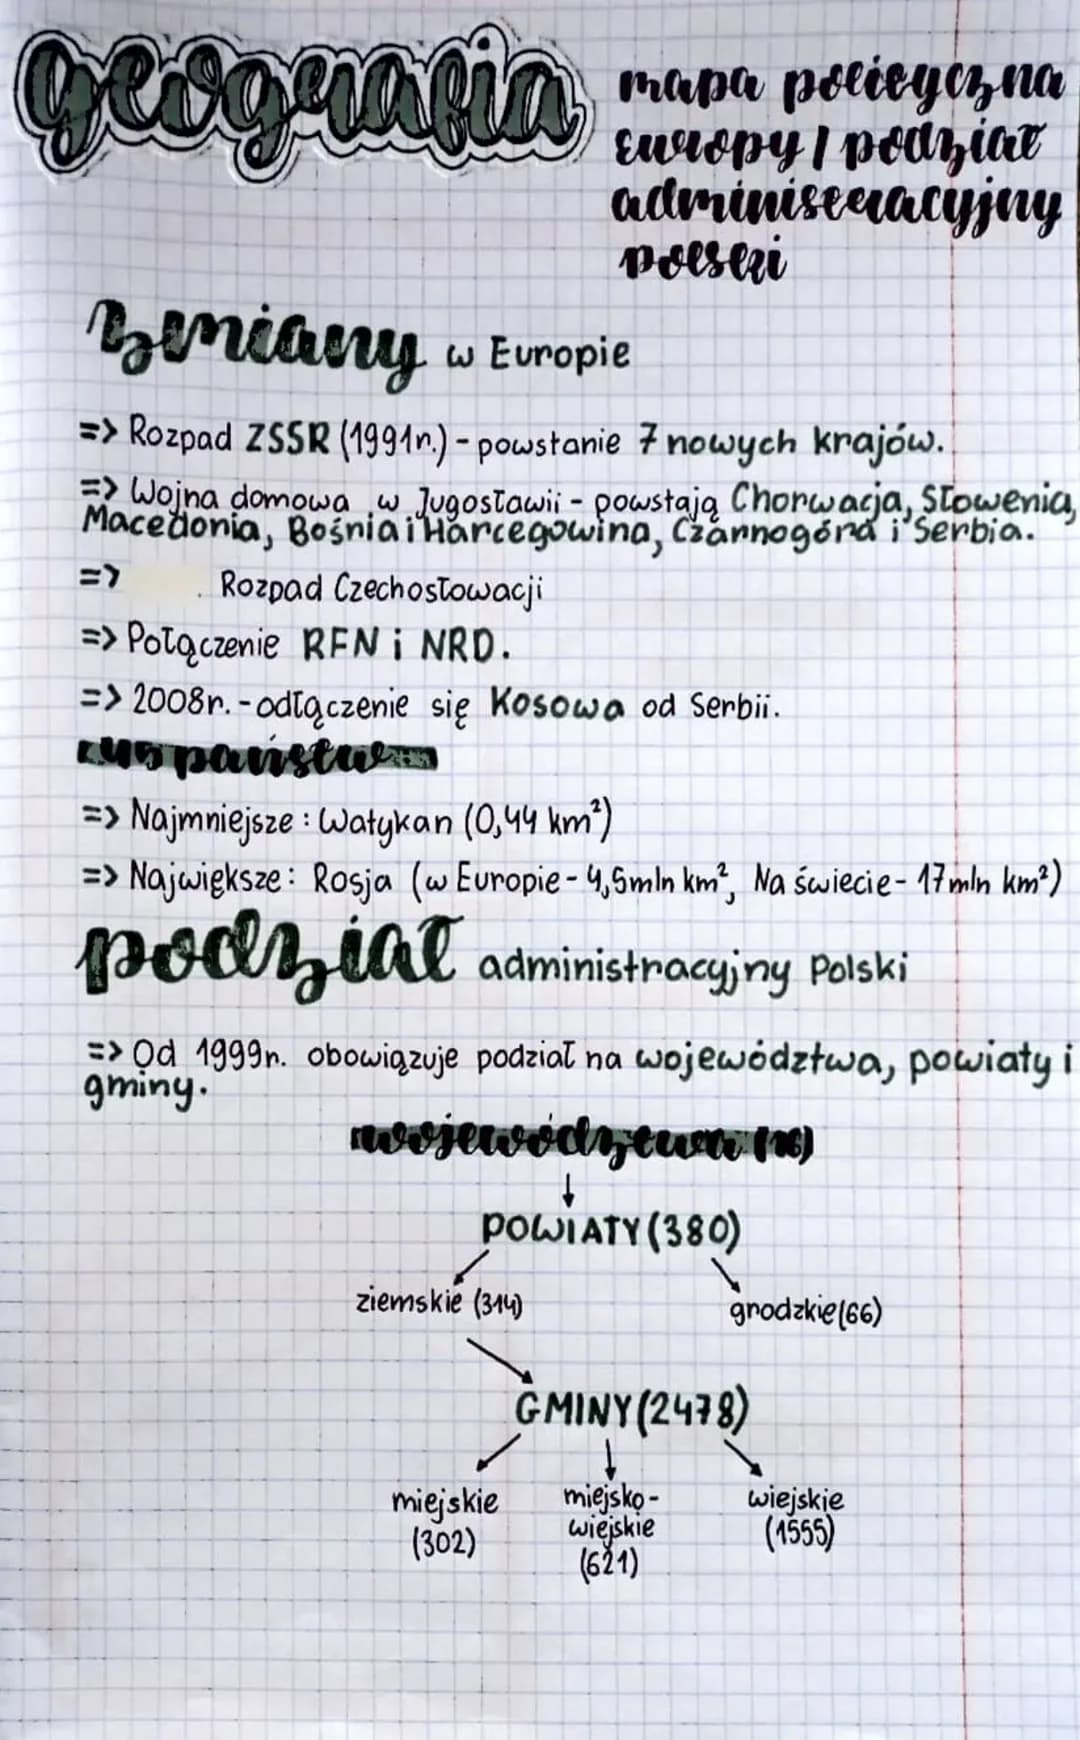 geografia
mapa polityczna
Europy / podział
administracyjny
polski
Zmiany w Europie
=> Rozpad ZSSR (1991r.) - powstanie 7 nowych krajów.
=> Wojna domowa w Jugosławii - powstają Chorwacja, Słowenia,
Macedonia, Bośnia i Harcegowina, Czarnogóra i Serbia.
=> Rozpad Czechosłowacji
=> Połączenie RFN i NRD.
=> 2008r. - odłączenie się Kosowa od Serbii.
45 państw
=> Najmniejsze: Watykan (0,44 km²)
=> Największe: Rosja (w Europie - 4,5mln km², Na świecie - 17mln km²)
podział administracyjny Polski
=> Od 1999r. obowiązuje podział na województwa, powiaty i
gminy.
województwa (16)
↓
POWIATY (380)
ziemskie (314) grodzkie (66)
GMINY (2478)
miejskie miejsko- wiejskie
(302) wiejskie (1555)
(621)